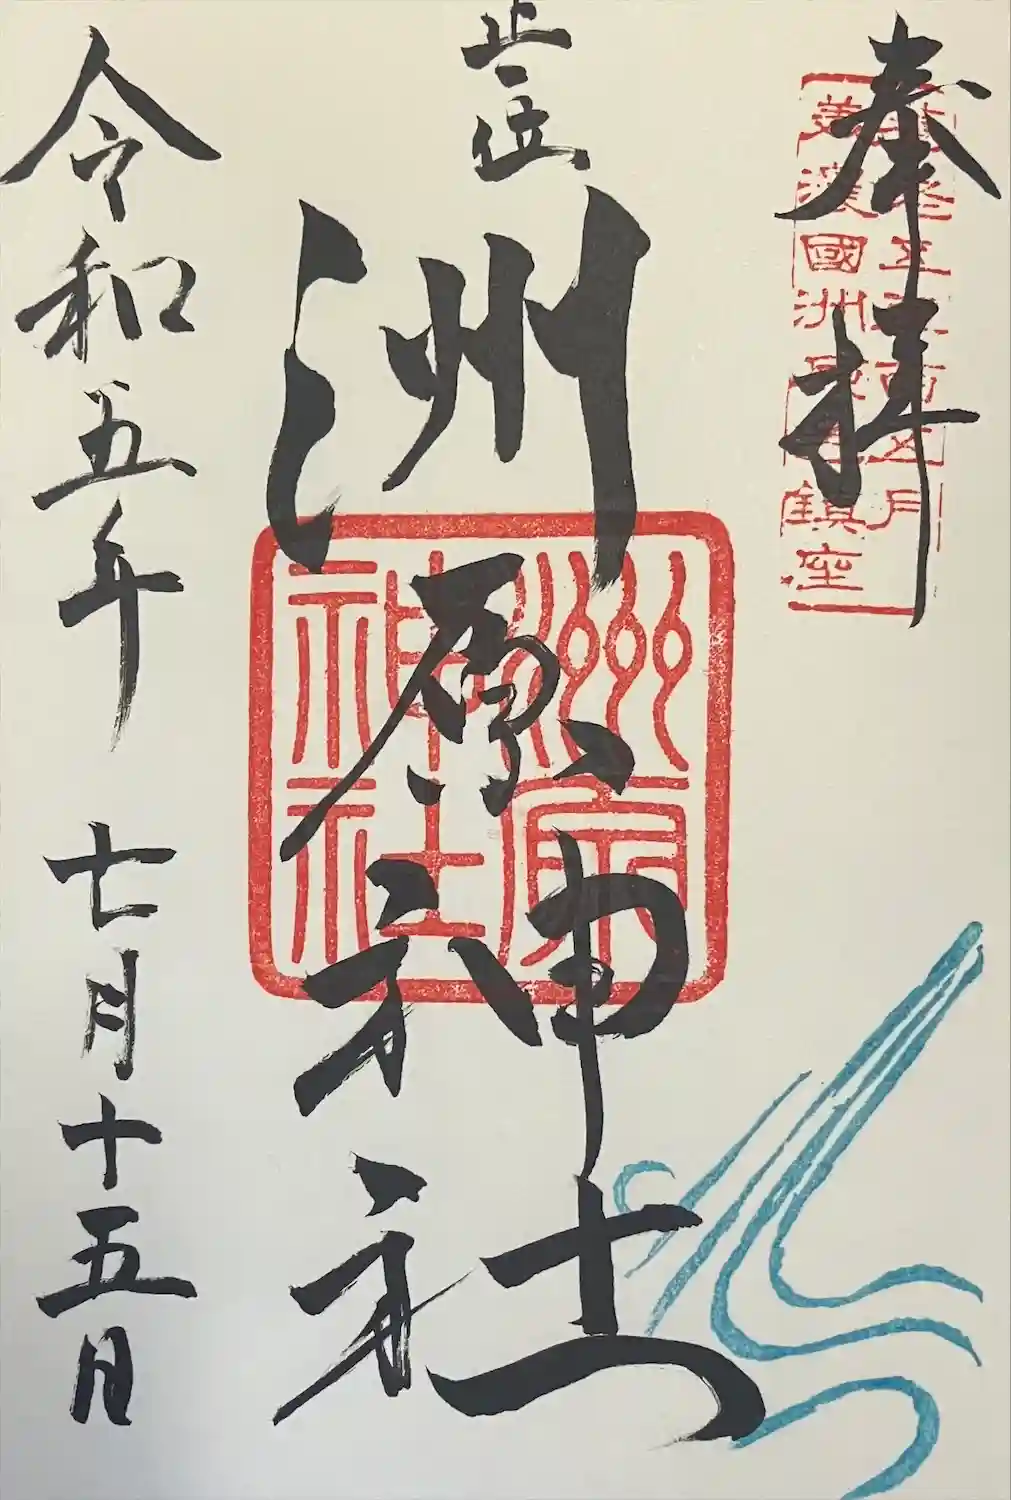 奉拝
美濃國洲原鎮座
正一位
洲原神社
洲原神社
令和五年 七月十五日